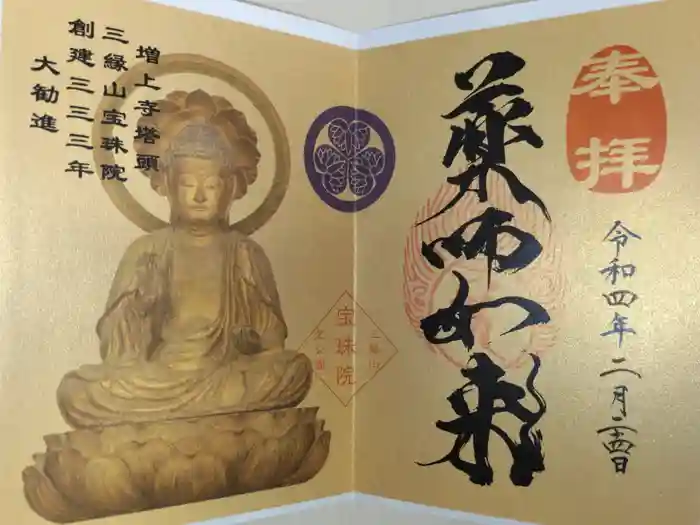 奉拝
令和四年二月二四日
薬師如来
増上寺塔頭
三縁山宝珠院
創建三三三年
大勧進
三縁山
宝珠院